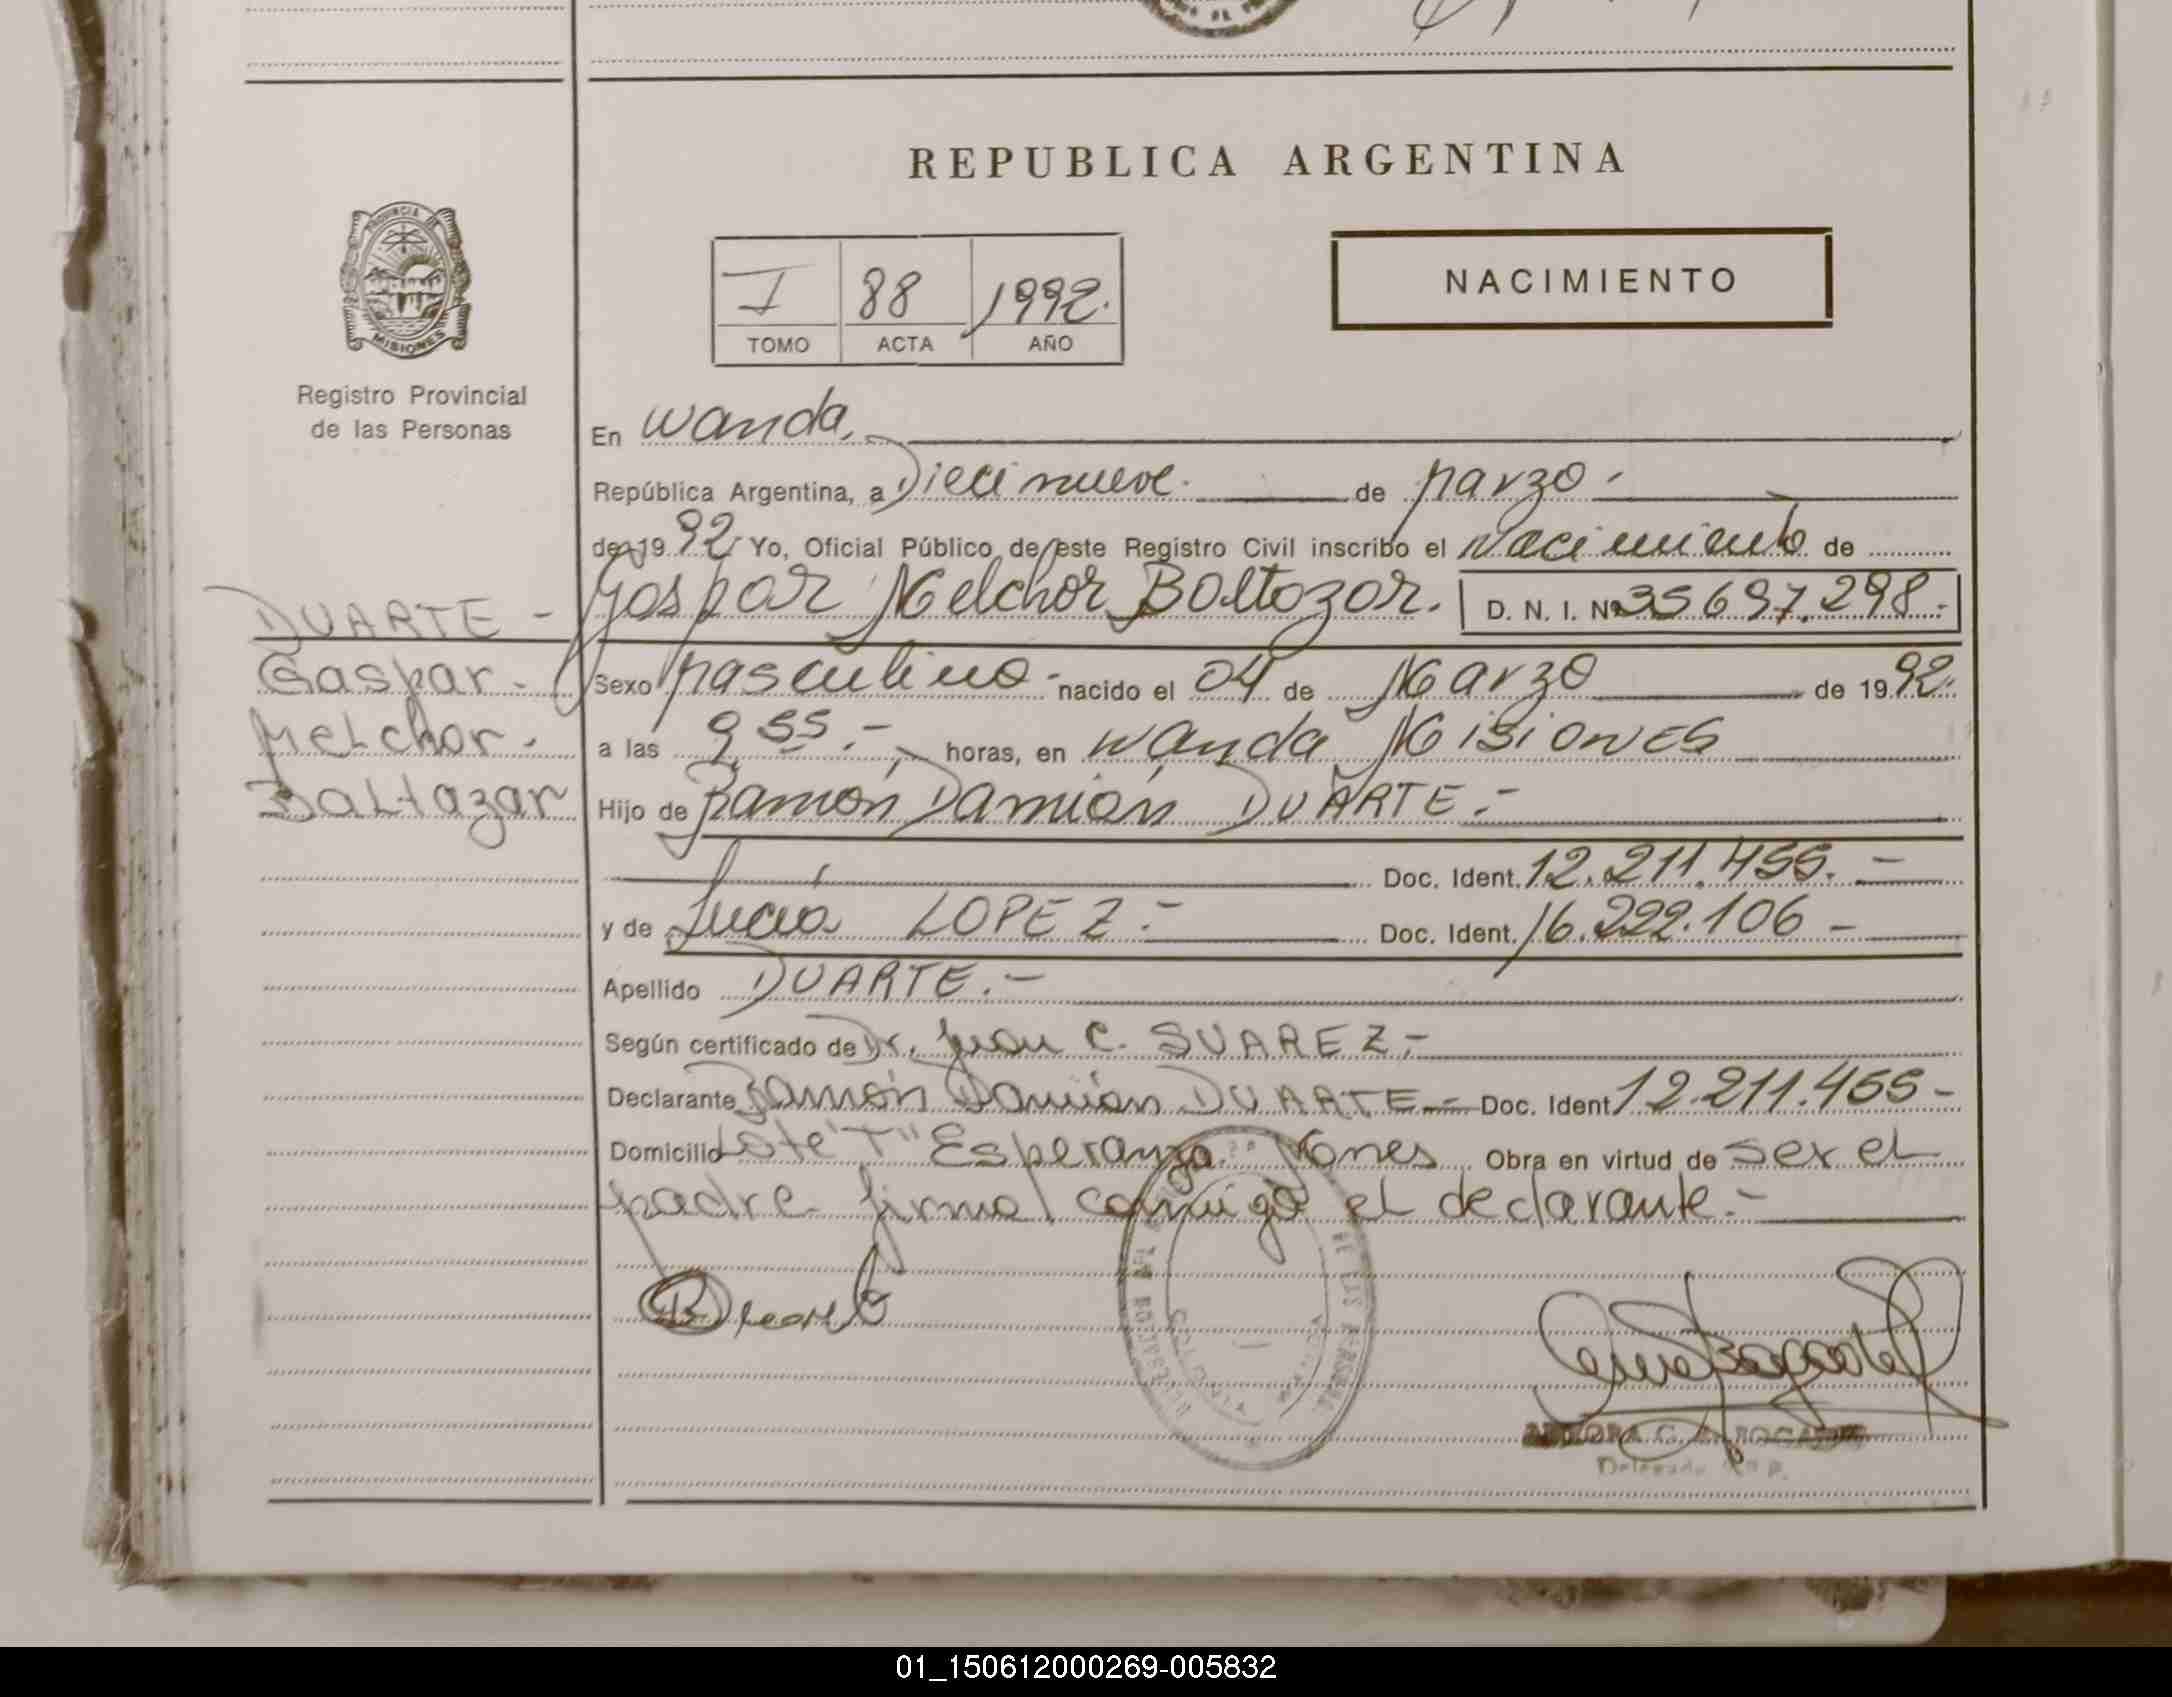 REPUBLICA ARGENTINA
PROVINCIA DE
MISIONES
Registro Provincial
de las Personas
I 88 1992.
TOMO ACTA AÑO
NACIMIENTO
En Wanda,
República Argentina, a Diecinueve. de Marzo.
de 19 92 Yo, Oficial Público de este Registro Civil inscribo el Nacimiento de
Gaspar Melchor Baltazar. D. N. I. Nº 35697.298.-
DUARTE -
Gaspar.
Melchor.
Baltazar
Sexo Masculino.- nacido el 04 de Marzo de 19 92.
a las 9 55.- horas, en Wanda Misiones
Hijo de Ramón Damián DUARTE.-
Doc. Ident. 12.211.455.-
y de Lucía LOPEZ.- Doc. Ident. 16.222.106 -
Apellido DUARTE.-
Según certificado de Dr. Juan C. SUAREZ.-
Declarante Ramón Damián DUARTE.- Doc. Ident 12.211.455-
Domicilio Lote "T" Esperanza. Mnes Obra en virtud de ser el
padre firma conmigo el declarante.-
01_150612000269-005832